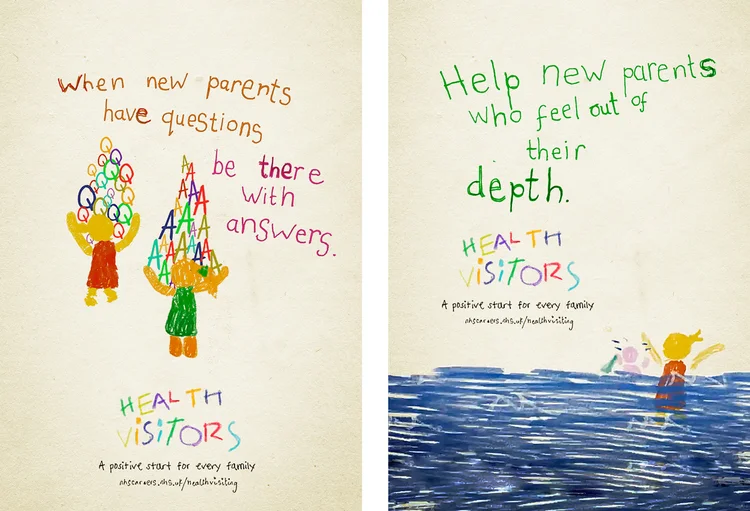 When new parents
have questions
be there
with
answers.
Q Q Q Q Q Q Q Q Q Q
A A A A A A A A A A
HEALTH
VISITORS
A positive start for every family
Help new parents
who feel out of
their
depth.
HEALTH
VISITORS
A positive start for every family